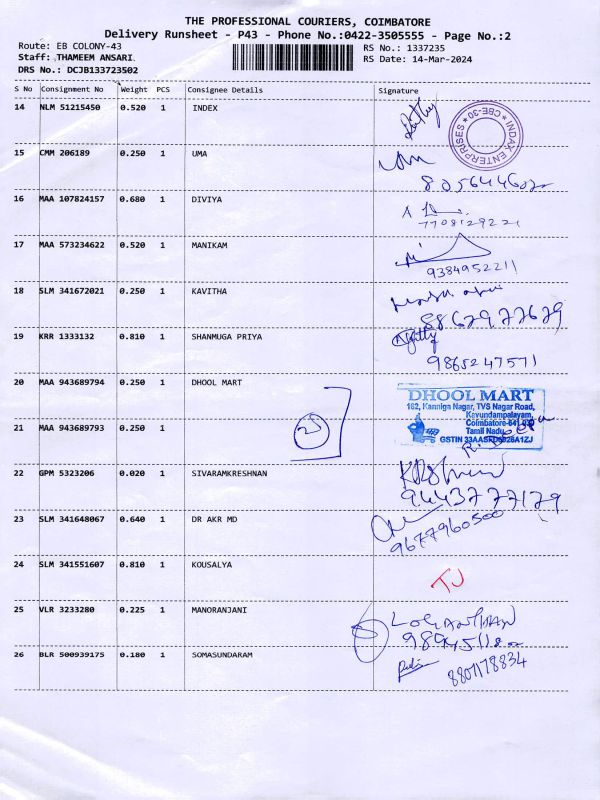 THE PROFESSIONAL COURIERS, COIMBATORE
Delivery Runsheet - P43 - Phone No.:0422-3505555 - Page No.:2
Route: EB COLONY-43
RS No.: 1337235
Staff: THAMEEM ANSARI.
RS Date: 14-Mar-2024
DRS No.: DCJB133723502
S No Consignment No Weight PCS Consignee Details Signature
14 NLM 51215450 0.520 1 INDEX
INDAX ENTERPRISES ★ CBE-30 ★
15 CMM 206189 0.250 1 UMA
16 MAA 107824157 0.680 1 DIVIYA
7708129221
17 MAA 573234622 0.520 1 MANIKAM
9384952211
18 SLM 341672021 0.250 1 KAVITHA
8867977679
19 KRR 1333132 0.810 1 SHANMUGA PRIYA
9865247571
20 MAA 943689794 0.250 1 DHOOL MART
DHOOL MART
162, Kanniga Nagar, TVS Nagar Road,
Kavundampalayam,
Tamil Nadu
21 MAA 943689793 0.250 1
25
22 GPM 5323206 0.020 1 SIVARAMKRESHNAN
9443777179
23 SLM 341648067 0.640 1 DR AKR MD
9677960500
24 SLM 341551607 0.810 1 KOUSALYA
TJ
25 VLR 3233280 0.225 1 MANORANJANI
LOGANTHAN
26 BLR 500939175 0.180 1 SOMASUNDARAM